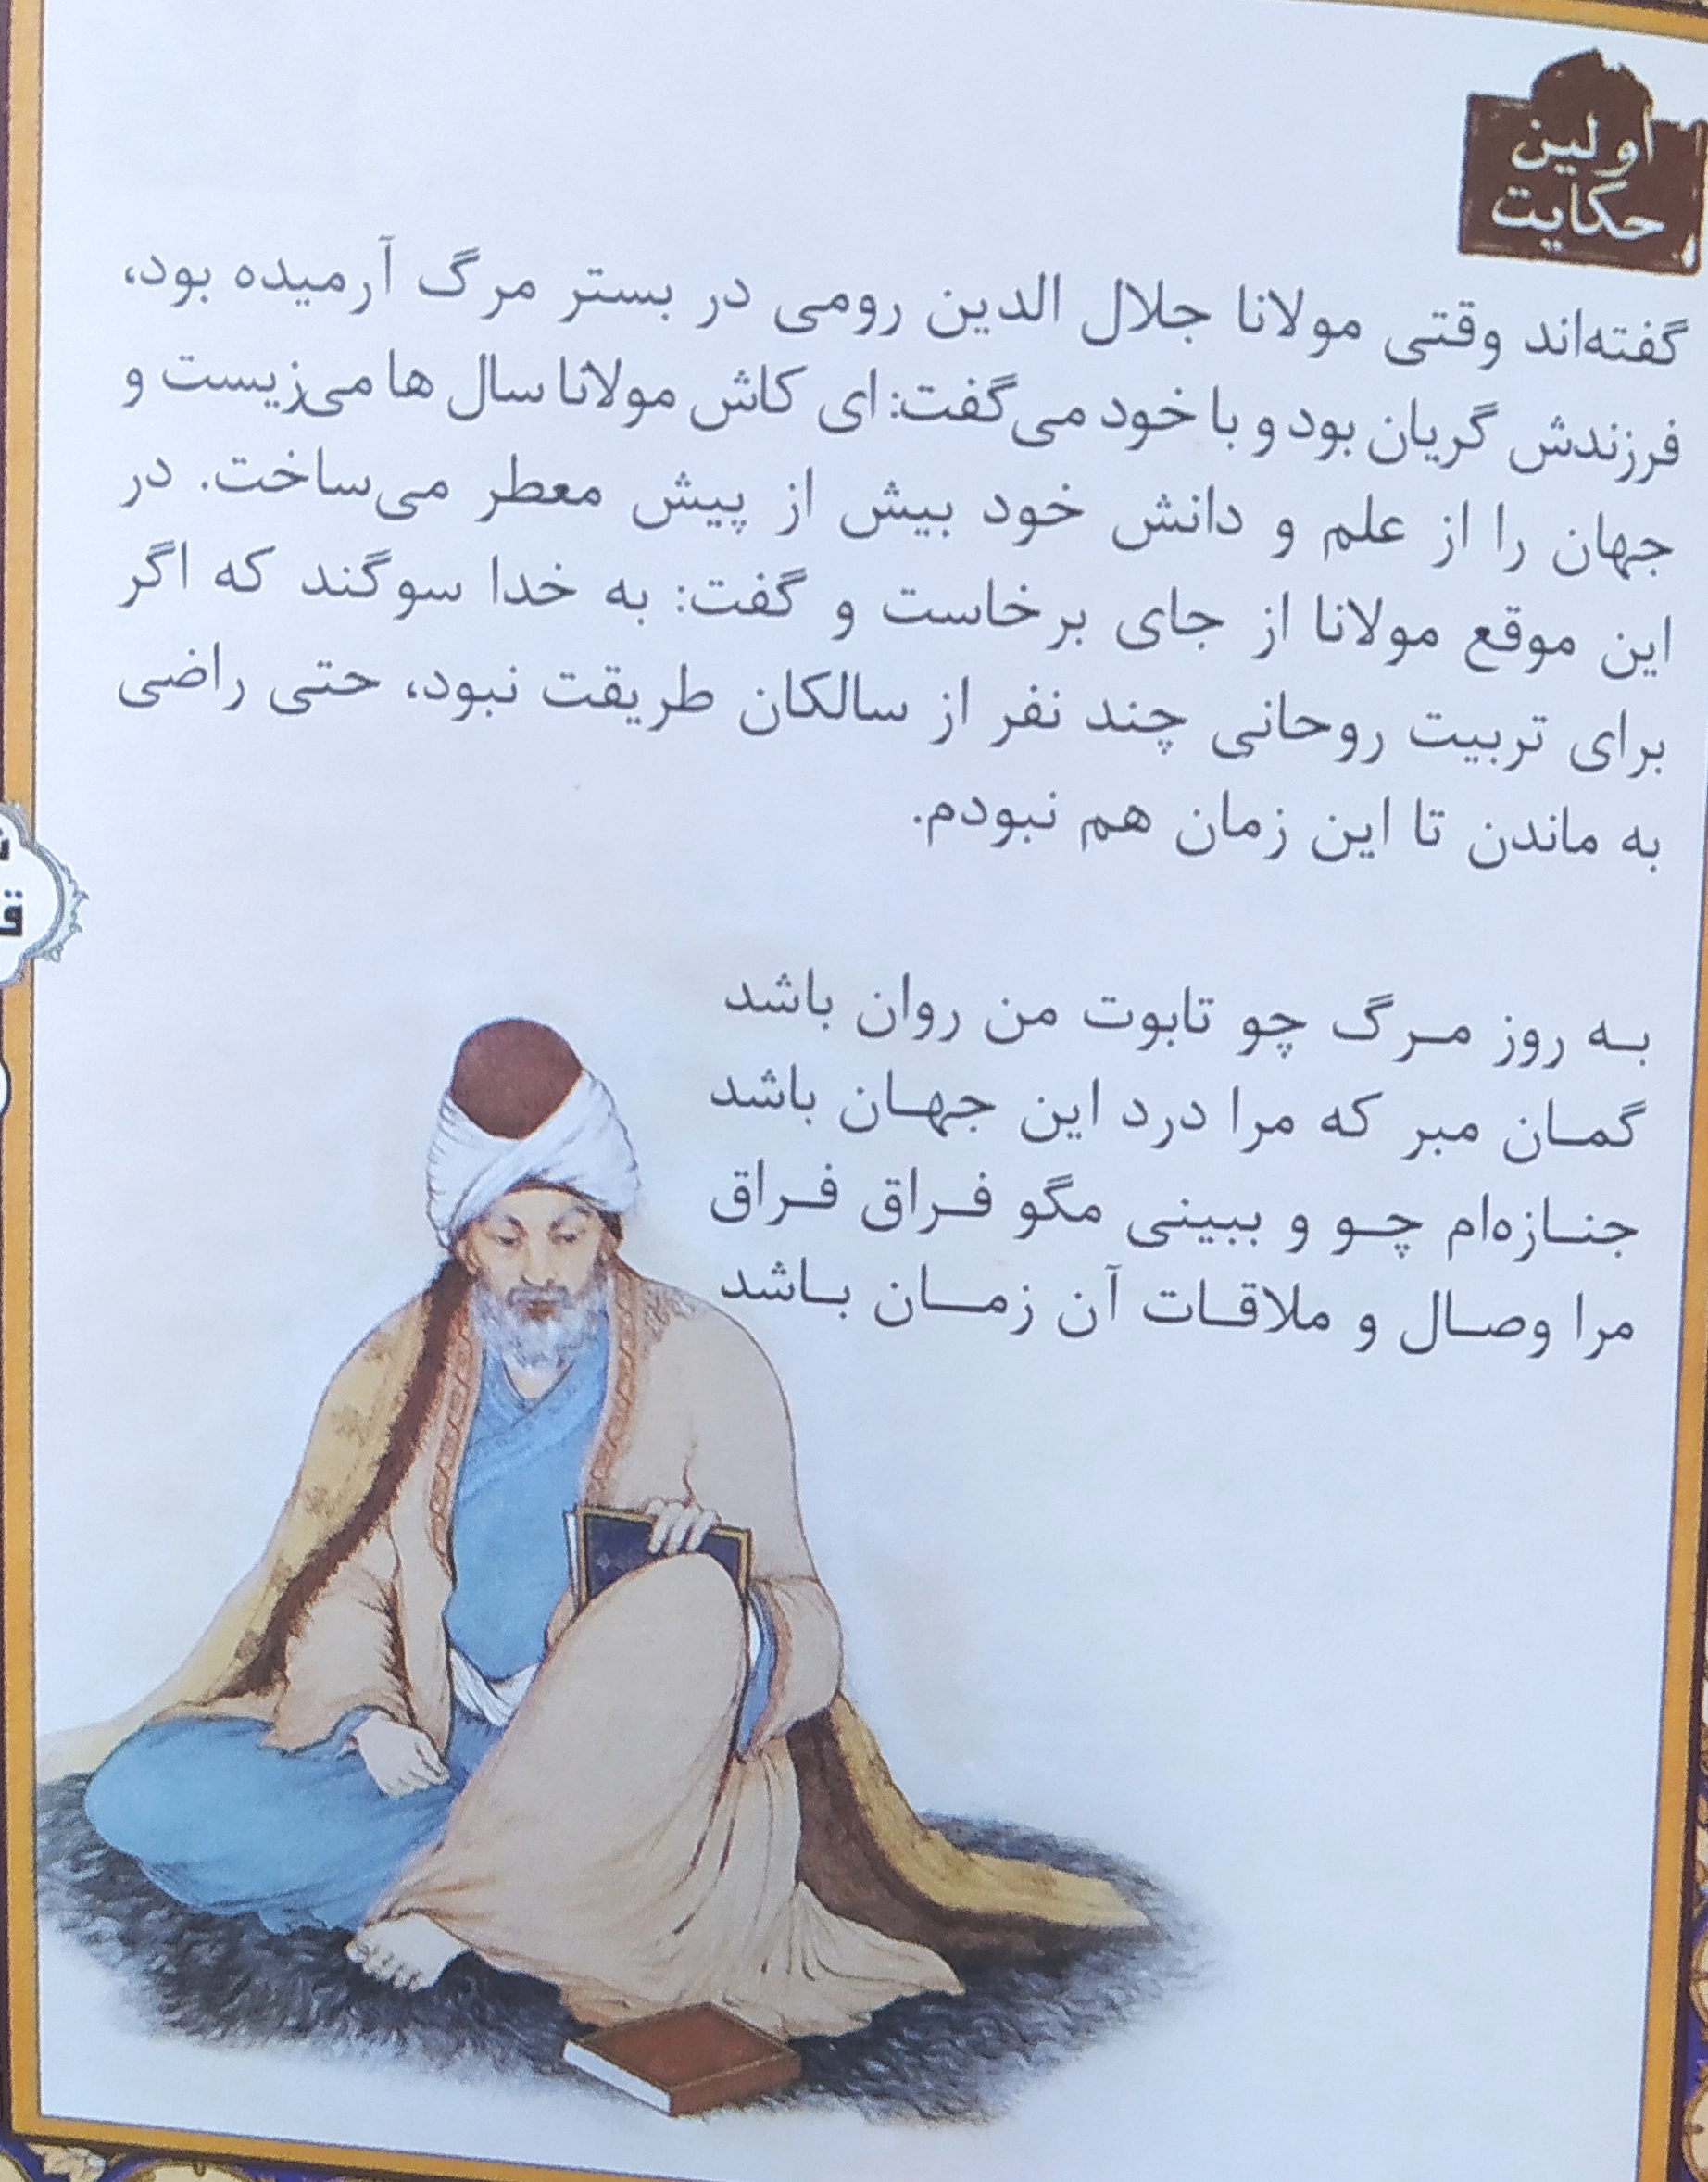 اولین
حکایت
گفته‌اند وقتی مولانا جلال الدین رومی در بستر مرگ آرمیده بود،
فرزندش گریان بود و با خود می‌گفت: ای کاش مولانا سال ها می‌زیست و
جهان را از علم و دانش خود بیش از پیش معطر می‌ساخت. در
این موقع مولانا از جای برخاست و گفت: به خدا سوگند که اگر
برای تربیت روحانی چند نفر از سالکان طریقت نبود، حتی راضی
به ماندن تا این زمان هم نبودم.
بـه روز مـرگ چو تابوت من روان باشد
گمـان مبر که مرا درد این جهـان باشد
جنـازه‌ام چـو و ببینی مگو فـراق فـراق
مرا وصـال و ملاقـات آن زمـان بـاشد